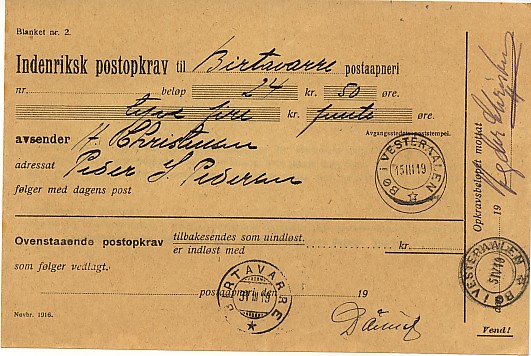 Blanket nr. 2.
Indenriksk postopkrav til Birtavarre postaapneri
nr. beløp 24 kr. 50 øre.
fire kr. femti øre.
Avgangsstedets poststempel.
avsender H. Christensen
adressat Peder H. Pedersen
følger med dagens post
BØ I VESTERAALEN
15 III 19
Ovenstaaende postopkrav tilbakesendes som uindløst.
er indløst med kr.
som følger vedlagt.
postaapneri den 19
BIRTAVARRE
Novbr. 1916.
Opkravsbeløpet mottat
19
BØ I VESTERAALEN
Vend!